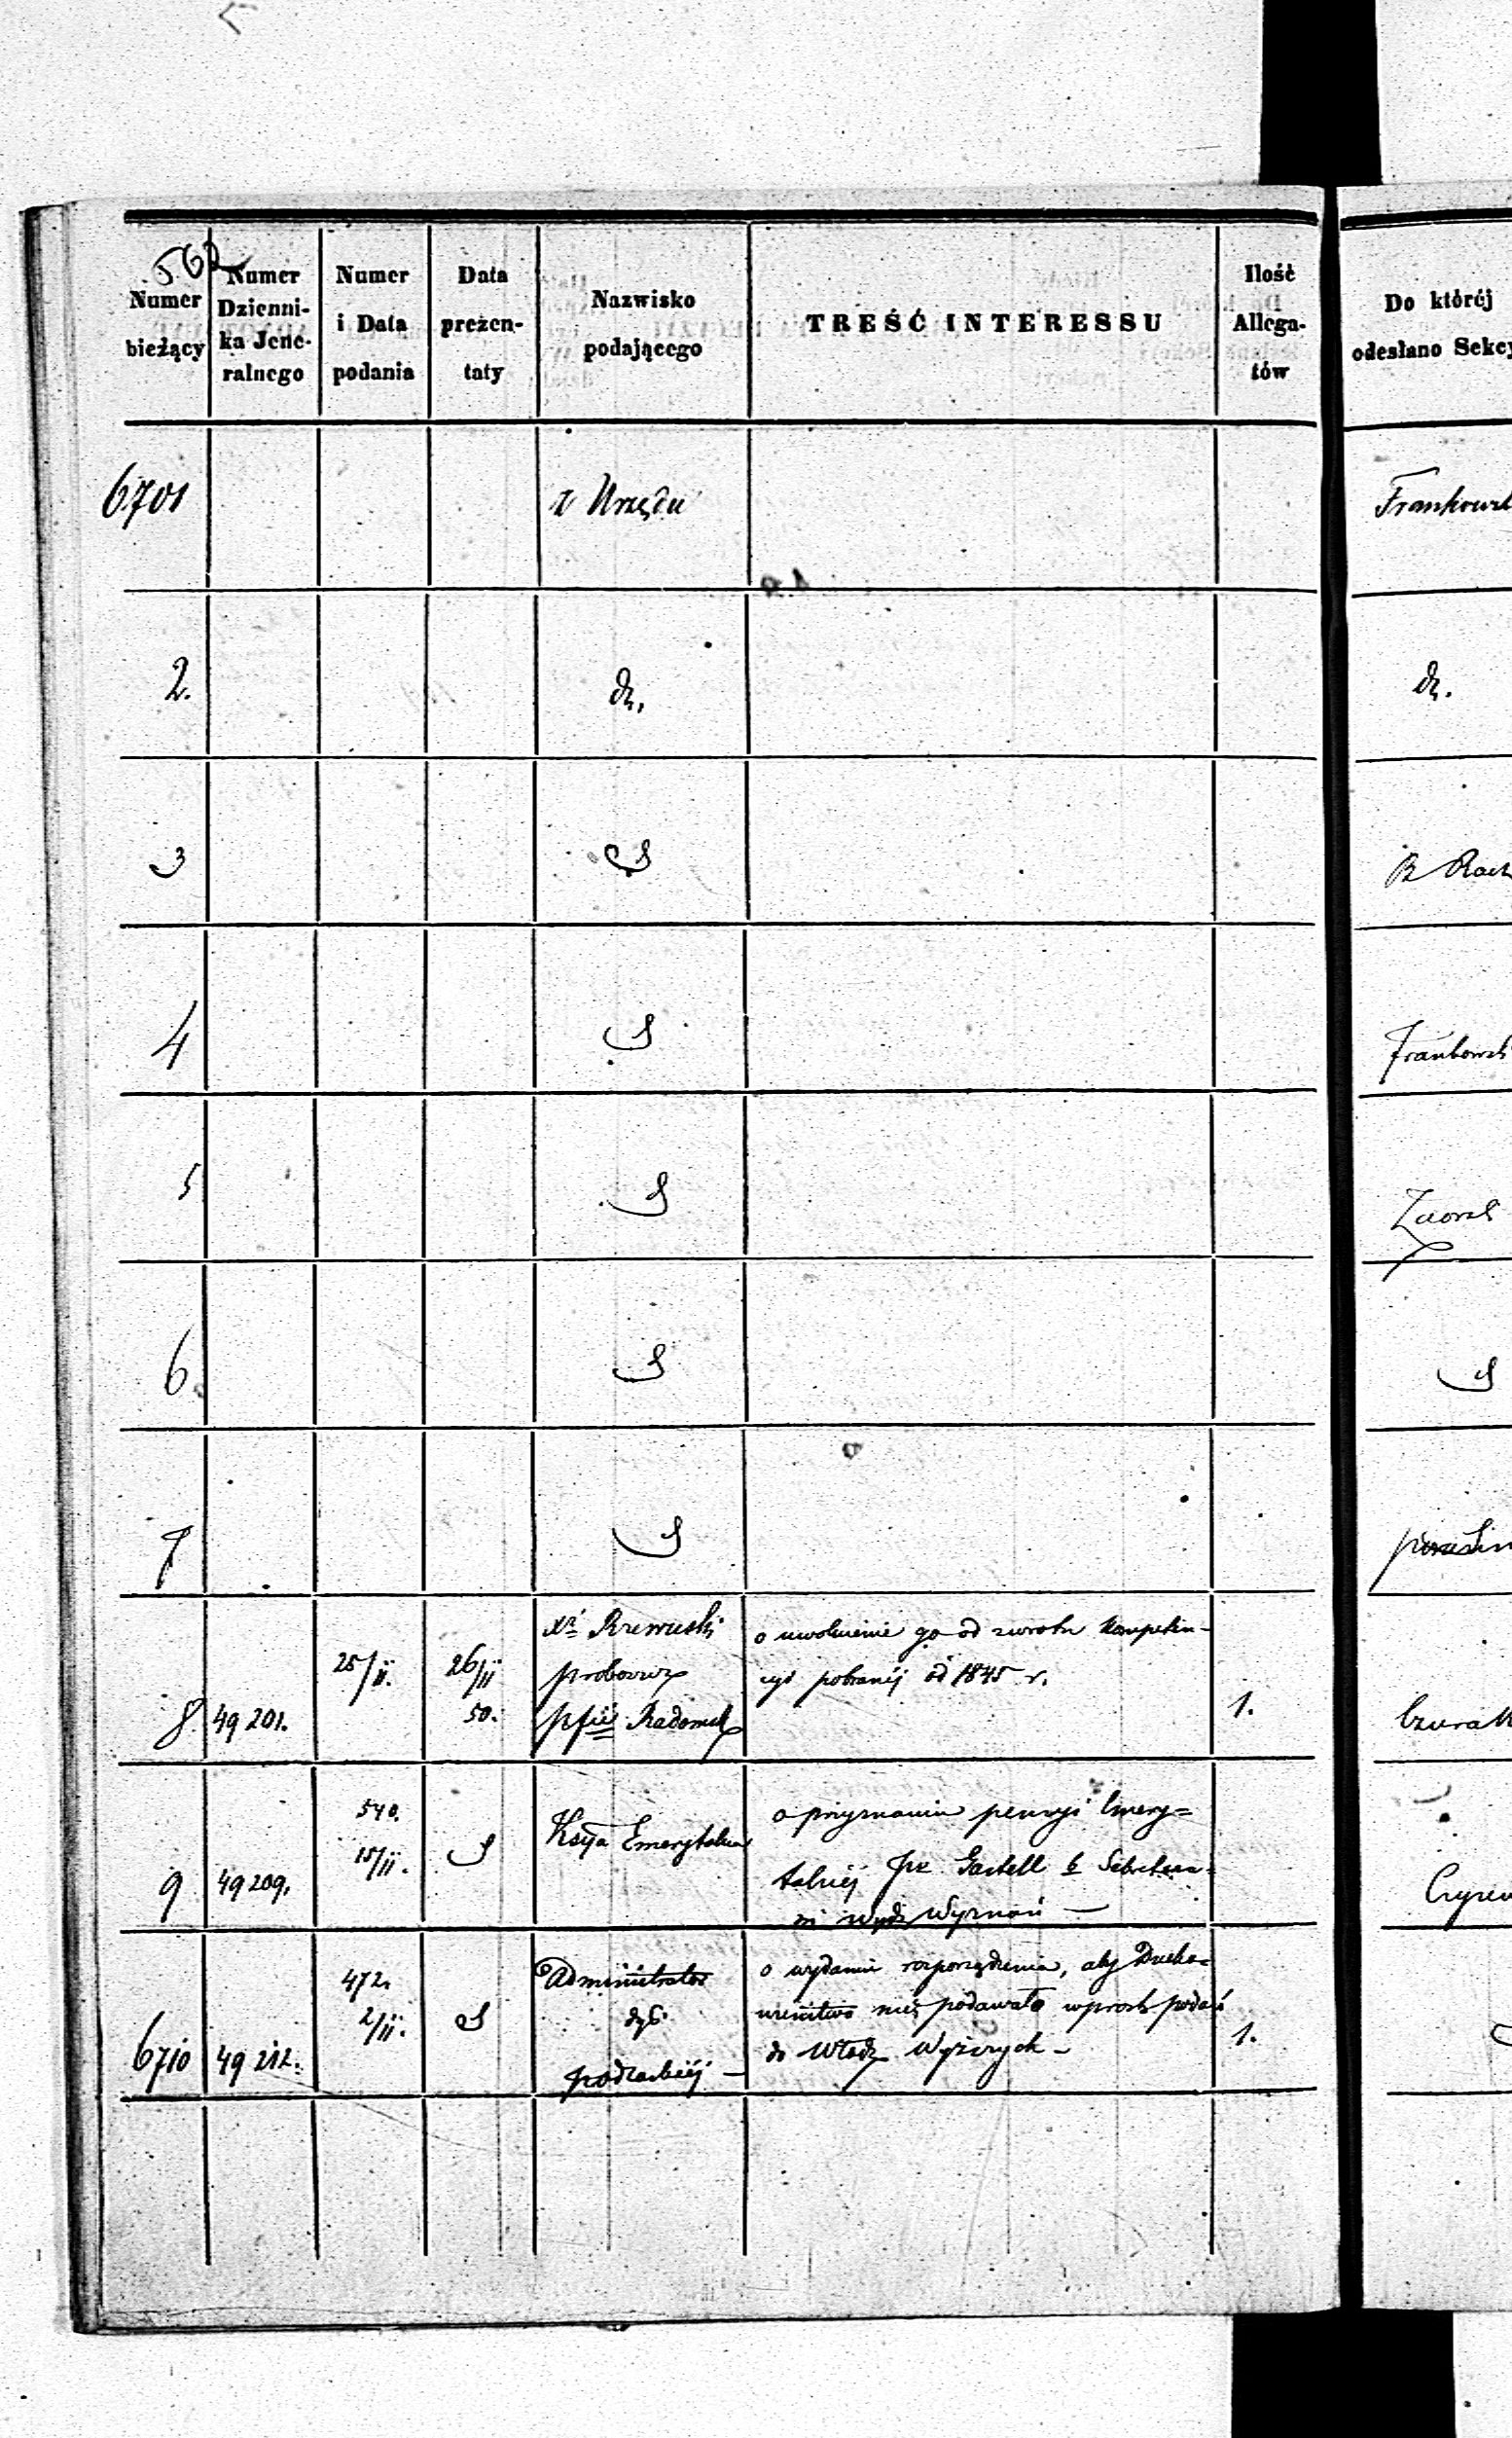 562
Numer bieżący
Numer Dzienni-ka Jene-ralnego
Numer i Data podania
Data prezen-taty
Nazwisko podającego
TREŚĆ INTERESSU
Ilość Allega-tów
Do któréj odesłano Sekcy
6701 z Urzędu
2. dt.
dt.
3
4
5
6
7
8 49 201. 25/11. 26/11 50.
Xdz Rzewuski
proboszcz
pfii Radomsk
o uwolnienie go od zwrotu Kompeten-
cyi pobranéj od 1845 r.
1.
9 49 209. 540. 15/11.
Kssya Emerytalna
o przyznaniu pensyi Emery=
talnéj
Wydz Wyznań —
6710 49 212. 472. 2/11.
Administrator
dyec.
podlaskiéj —
o wydanie rozporządzenia, abyDucho=
wieństwo nie podawało wprost podań
do Władz Wyższych —
1.